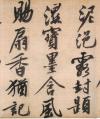 泥浥露封題
濕寶墨含風
賜扇香猶記